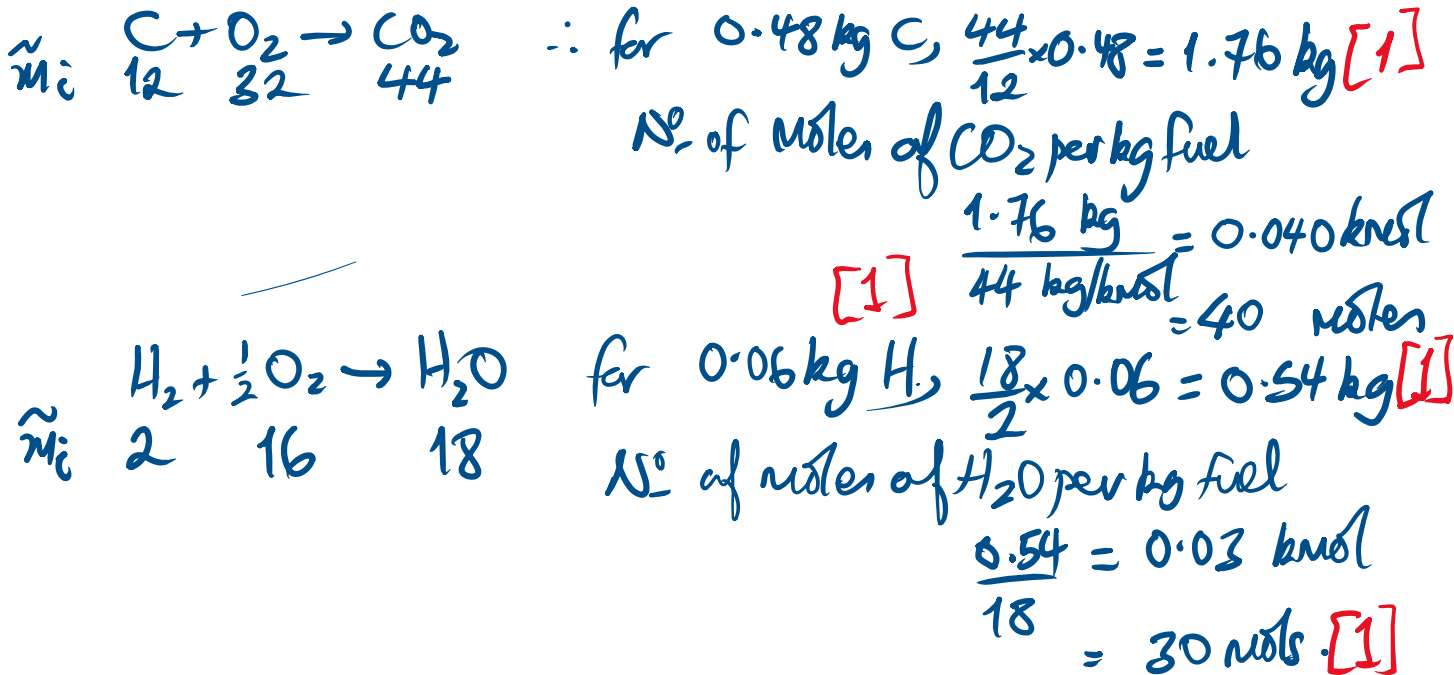 C + O₂ → CO₂ ∴ for 0.48 kg C, 44/12 × 0.48 = 1.76 kg [1]
m̃ᵢ 12 32 44
Nº of moles of CO₂ per kg fuel
1.76 kg / 44 kg/kmol = 0.040 kmol
[1] = 40 moles
H₂ + ½O₂ → H₂O for 0.06 kg H, 18/2 × 0.06 = 0.54 kg [1]
m̃ᵢ 2 16 18
Nº of moles of H₂O per kg fuel
0.54 / 18 = 0.03 kmol
= 30 mols. [1]